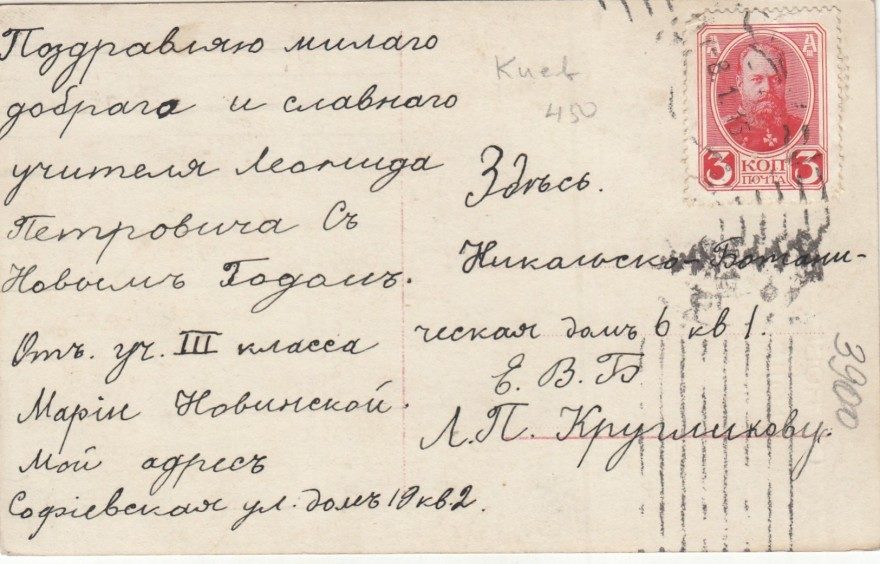 Поздравляю милаго
добраго и славнаго
учителя Леонида
Петровича Съ
Новымъ Годомъ.
Отъ. уч. III класса
Маріи Новинской.
Мой адресъ
Софіевская ул. домъ 19 кв. 2.
Киев
450
Здѣсь.
Никольско-Ботани-
ческая домъ 6 кв 1.
Е. В. Б
Л. П. Кругликову.
3900
3 КОП 3
ПОЧТА